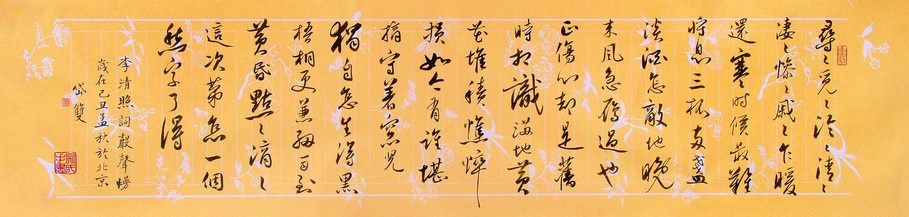 尋〻覓〻冷〻清〻
凄〻慘〻戚〻乍暖
還寒時候最難
將息三杯兩盞
淡酒怎敵他晚
来風急雁過也
正傷心却是舊
時相識滿地黄
花堆積憔悴
損如今有誰堪
摘守著窗兒
獨自怎生得黑
梧桐更兼細雨到
黄昏點〻滴〻
這次第怎一個
愁字了得
李清照詞聲聲慢
歲在己丑孟秋於北京
岱雙